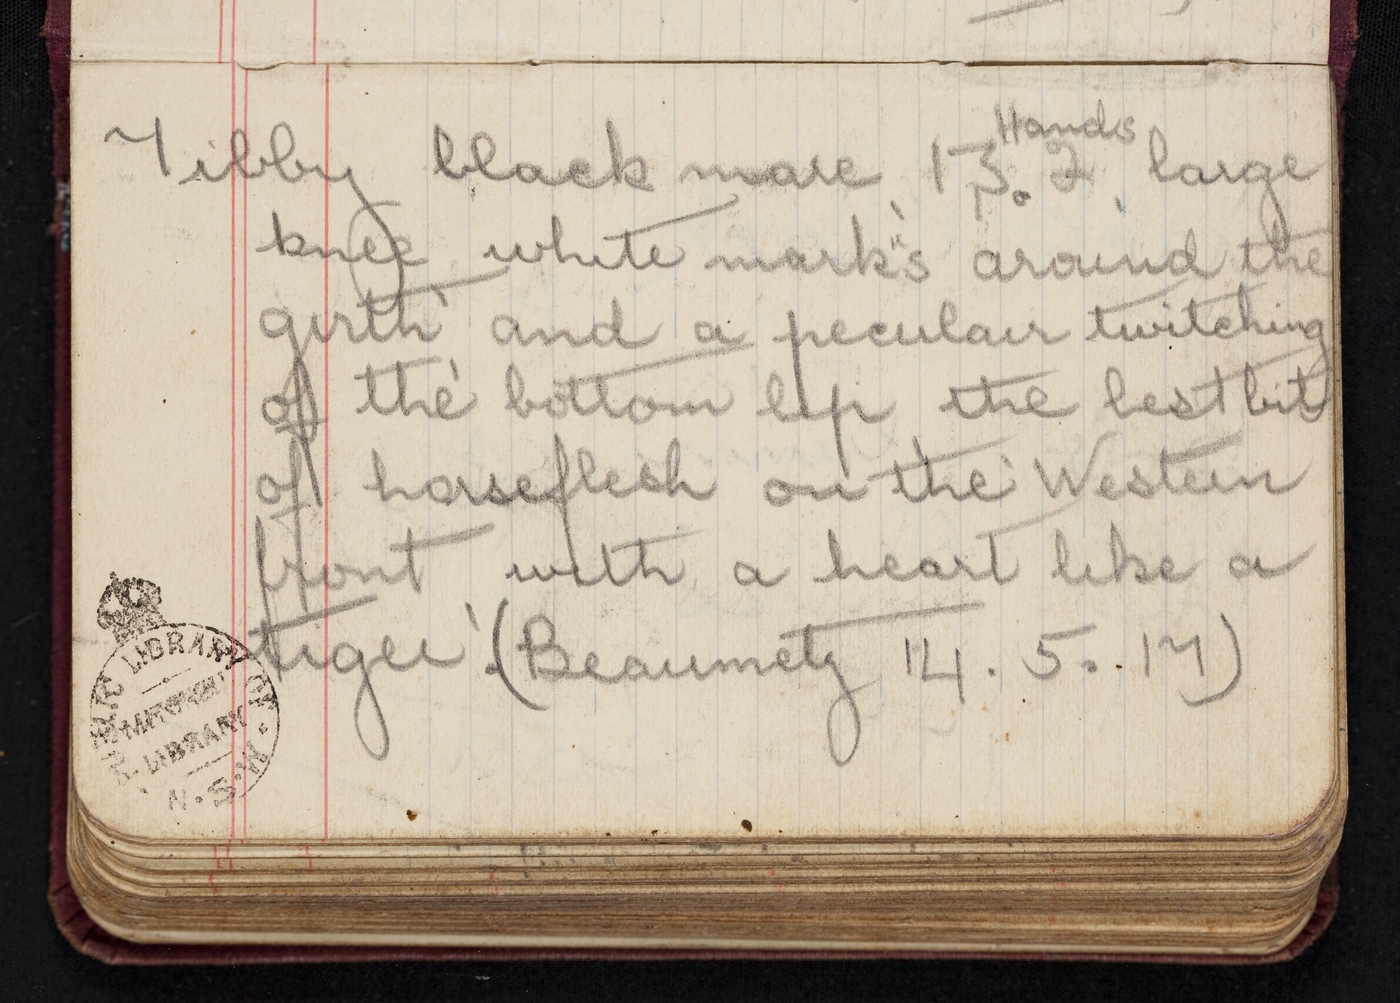 Hands
Tibby black mare 13.2 large
knee white mark's around the
girth and a peculair twitching
of the bottom lip the best bit
of horseflesh on the Western
front with a heart like a
tiger. (Beaumetz 14.5.17)
PUBLIC LIBRARY OF
MITCHELL
LIBRARY
N.S.W.